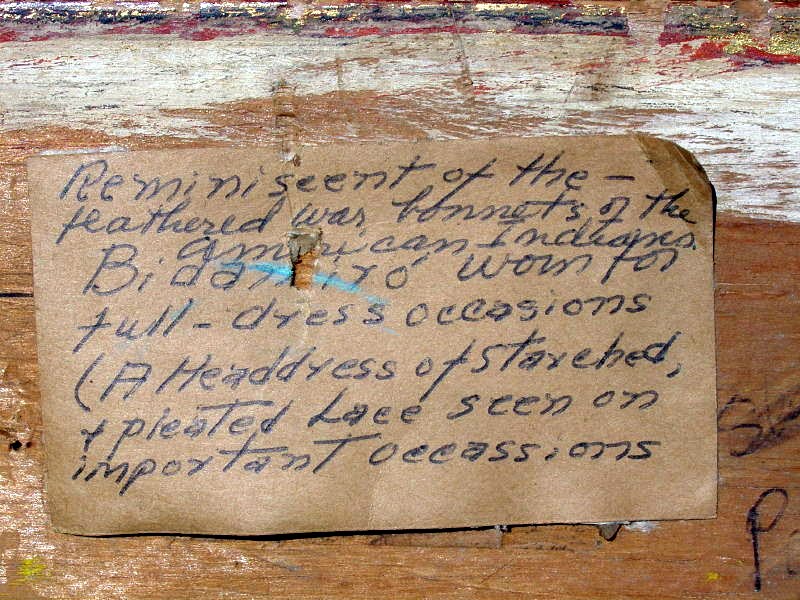 Reminiscent of the —
feathered war bonnets of the
American Indians
Bidaniro' worn for
full-dress occasions
(A Headdress of starched,
& pleated Lace seen on
important occassions
P